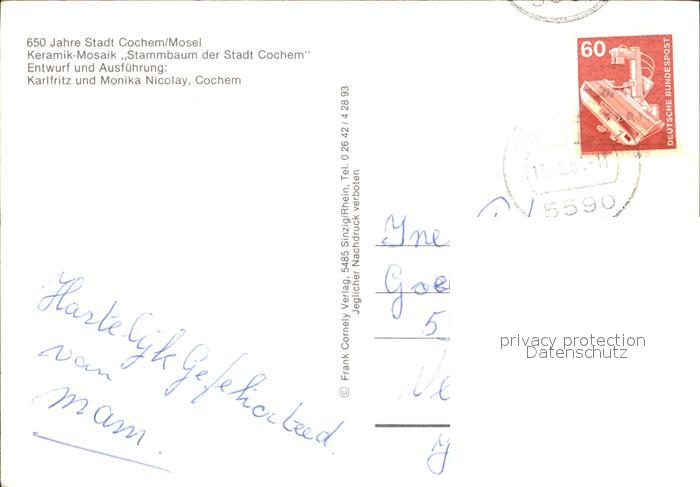 650 Jahre Stadt Cochem/Mosel
Keramik-Mosaik „Stammbaum der Stadt Cochem"
Entwurf und Ausführung:
Karlfritz und Monika Nicolay, Cochem
© Frank Cornely Verlag, 5485 Sinzig/Rhein, Tel. 0 26 42 / 4 28 93
Jeglicher Nachdruck verboten
60
DEUTSCHE BUNDESPOST
5590
Hartelijk Gefeliciteerd
van
mam.
Ine
Goe
5
Ne
privacy protection
Datenschutz